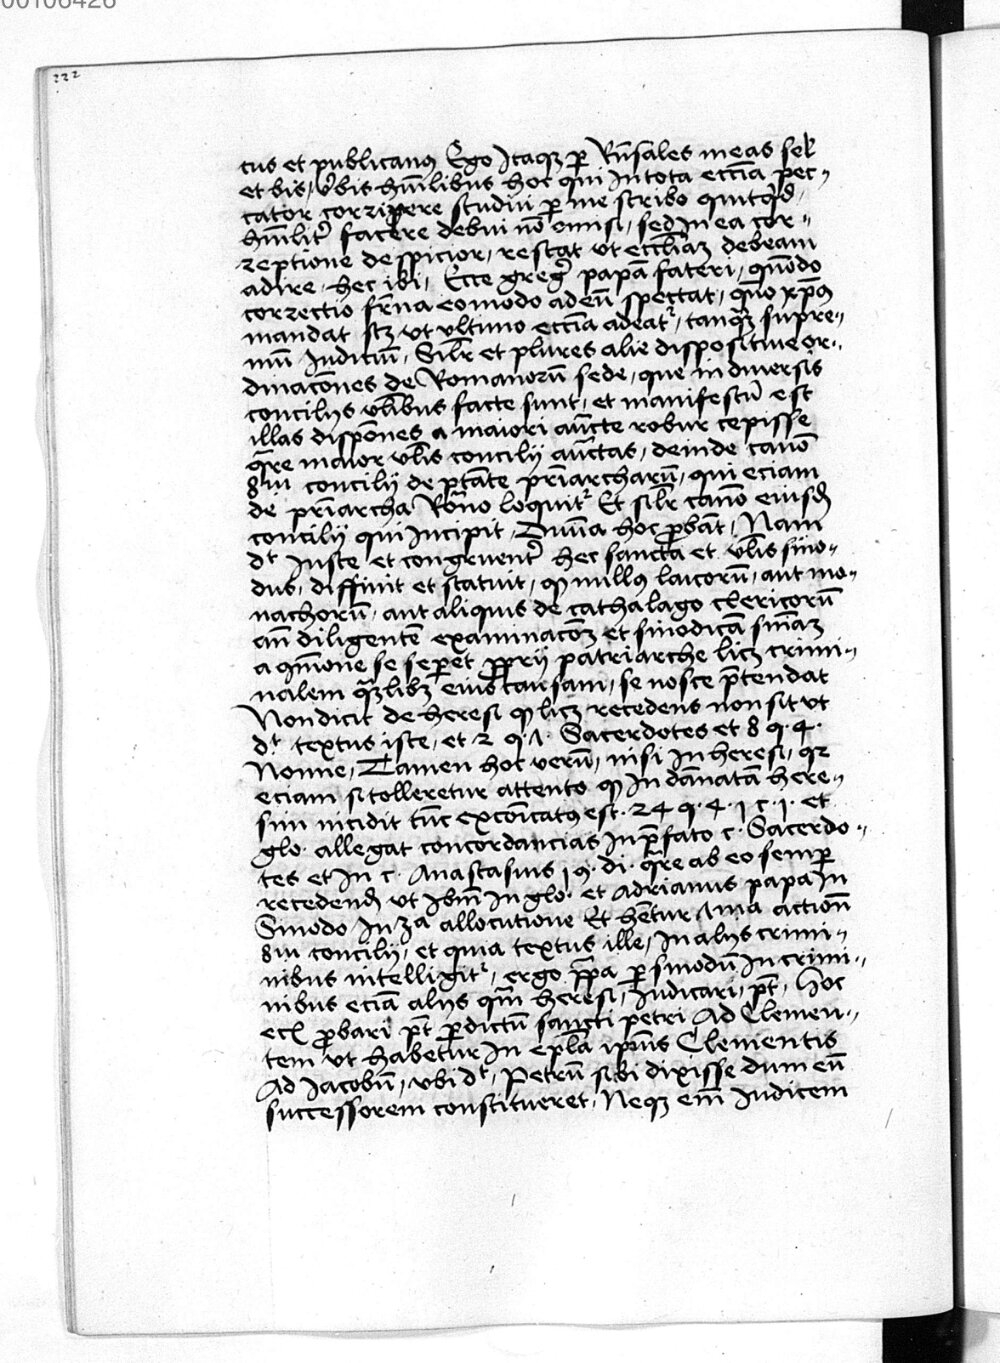 00106426
222
tus et publicanus Ego Itaq₃ ꝑ Rn̄sales meas sel
et bis, ūbis hūilibus hoc qui In tota eccīa pec-
cator corripere studui ꝑ me scribo quitqͥd
hūilit̄ facere debui nō omisi, sed In ea cor-
reptione despicior, restat ut ecclīaꝫ debeam
adire, hec ibi, Ecce greḡ papā fateri, quōdo
correctio frn̄a eomodo ad eū spectat, quō xp̄us
mandat scꝫ vt vltimo eccīa adeat̄, tanqꝫ supre-
mū Iudiciū, Silr̄ et plures alie dispositiue or-
dinacōnes de Romanorū sede, que in diuersis
concilijs vlībus facte sunt, et manifestū est
illas dispōnes a maiori aūcte robur cepisse
qͣre maior vlīs concilij aūctas, deinde canō
8ui concilij de ptāte priārcharū, qui eciam
de priārcha Rōno loquit̄ Et silr̄ canō eiusd̄
concilij qui Incipit, Diuīa hoc ꝓbāt, Nam
dt Iuste et congruent̄ hec sancta et vlīs sino-
dus, diffiniit et statuit, ꝙ nullus laicorū, aut mo-
nachorū, aut aliquis de cathalago clericorū
an̄ diligentē examinacōꝫ et sinodicā sn̄iaꝫ
a qm̄one se seꝑet ꝓprij patriarche licꝫ crimi-
nalem qꝫlibꝫ eius causam, se nosce p̄tendat
Non dicit de heresi ꝙ licꝫ recedens non sit vt
dt textus iste, et 2 q. 1. Sacerdotes et 8 q. 4.
Nonne, Tamen hoc verū, nisi In heresi, qꝛ
eciam si tolleretur attento ꝙ In dānatā here-
sim incidit tūc excōicatus est. 24 q. 4. 1 c. 1. et
glo. allegat concordancias In p̄fato c. Sacerdo-
tes et In c. Anastasius 19. di. qͣre ab eo semꝑ
recedend̄ vt Ibm̄ In glo. et Adrianus papa In
Sinodo In 3a allocutione Et hētur 7ma actiōn
8ui concilij, et quia textus ille, In alijs crimi-
nibus intelligit̄, ergo p̄pa ꝑ sinodū In crimi-
nibus eciā alijs qm̄ heresi, Iudicari, pt̄, Hoc
eci ꝓbari pt̄ ꝑ dictū sancti petri Ad Clemen-
tem vt habetur In epl̄a ip̄ius Clementis
Ad Iacobū, vbi dt, Petrū sibi dixisse dum eū
successorem constitueret, Neqꝫ em̄ Iudicem